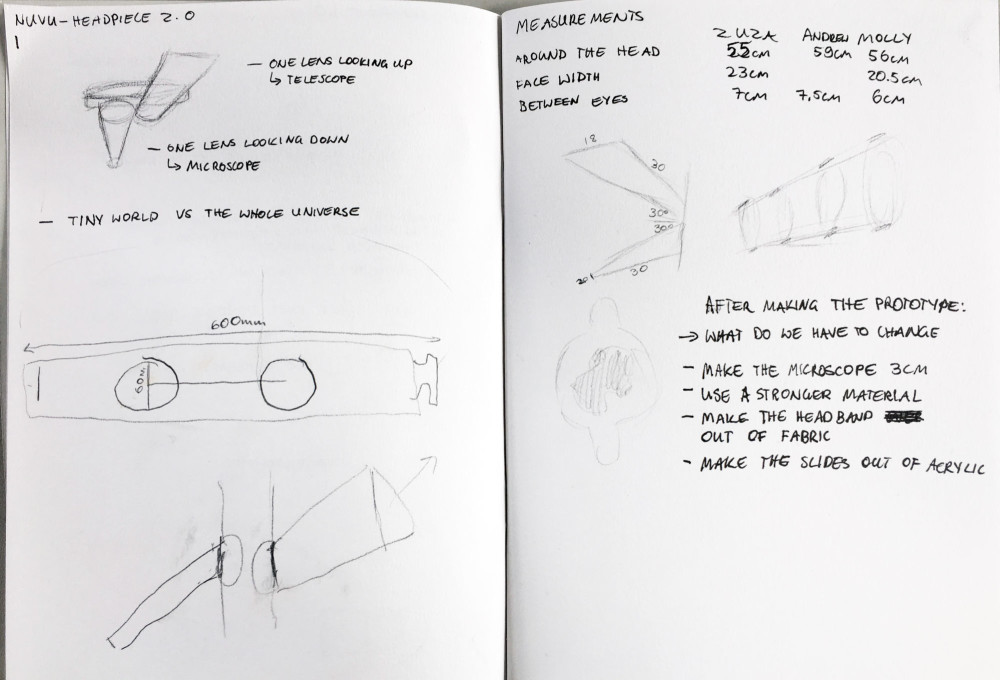 NUVU-HEADPIECE 2.0
1
— ONE LENS LOOKING UP
↳ TELESCOPE
— ONE LENS LOOKING DOWN
↳ MICROSCOPE
— TINY WORLD VS THE WHOLE UNIVERSE
600mm
MEASUREMENTS
ZUZA ANDREW MOLLY
AROUND THE HEAD 55cm 59cm 56cm
FACE WIDTH 23cm 20.5cm
BETWEEN EYES 7cm 7,5cm 6cm
18
30
30°
30°
30
20
AFTER MAKING THE PROTOTYPE:
→ WHAT DO WE HAVE TO CHANGE
- MAKE THE MICROSCOPE 3CM
- USE A STRONGER MATERIAL
- MAKE THE HEADBAND
OUT OF FABRIC
- MAKE THE SLIDES OUT OF ACRYLIC